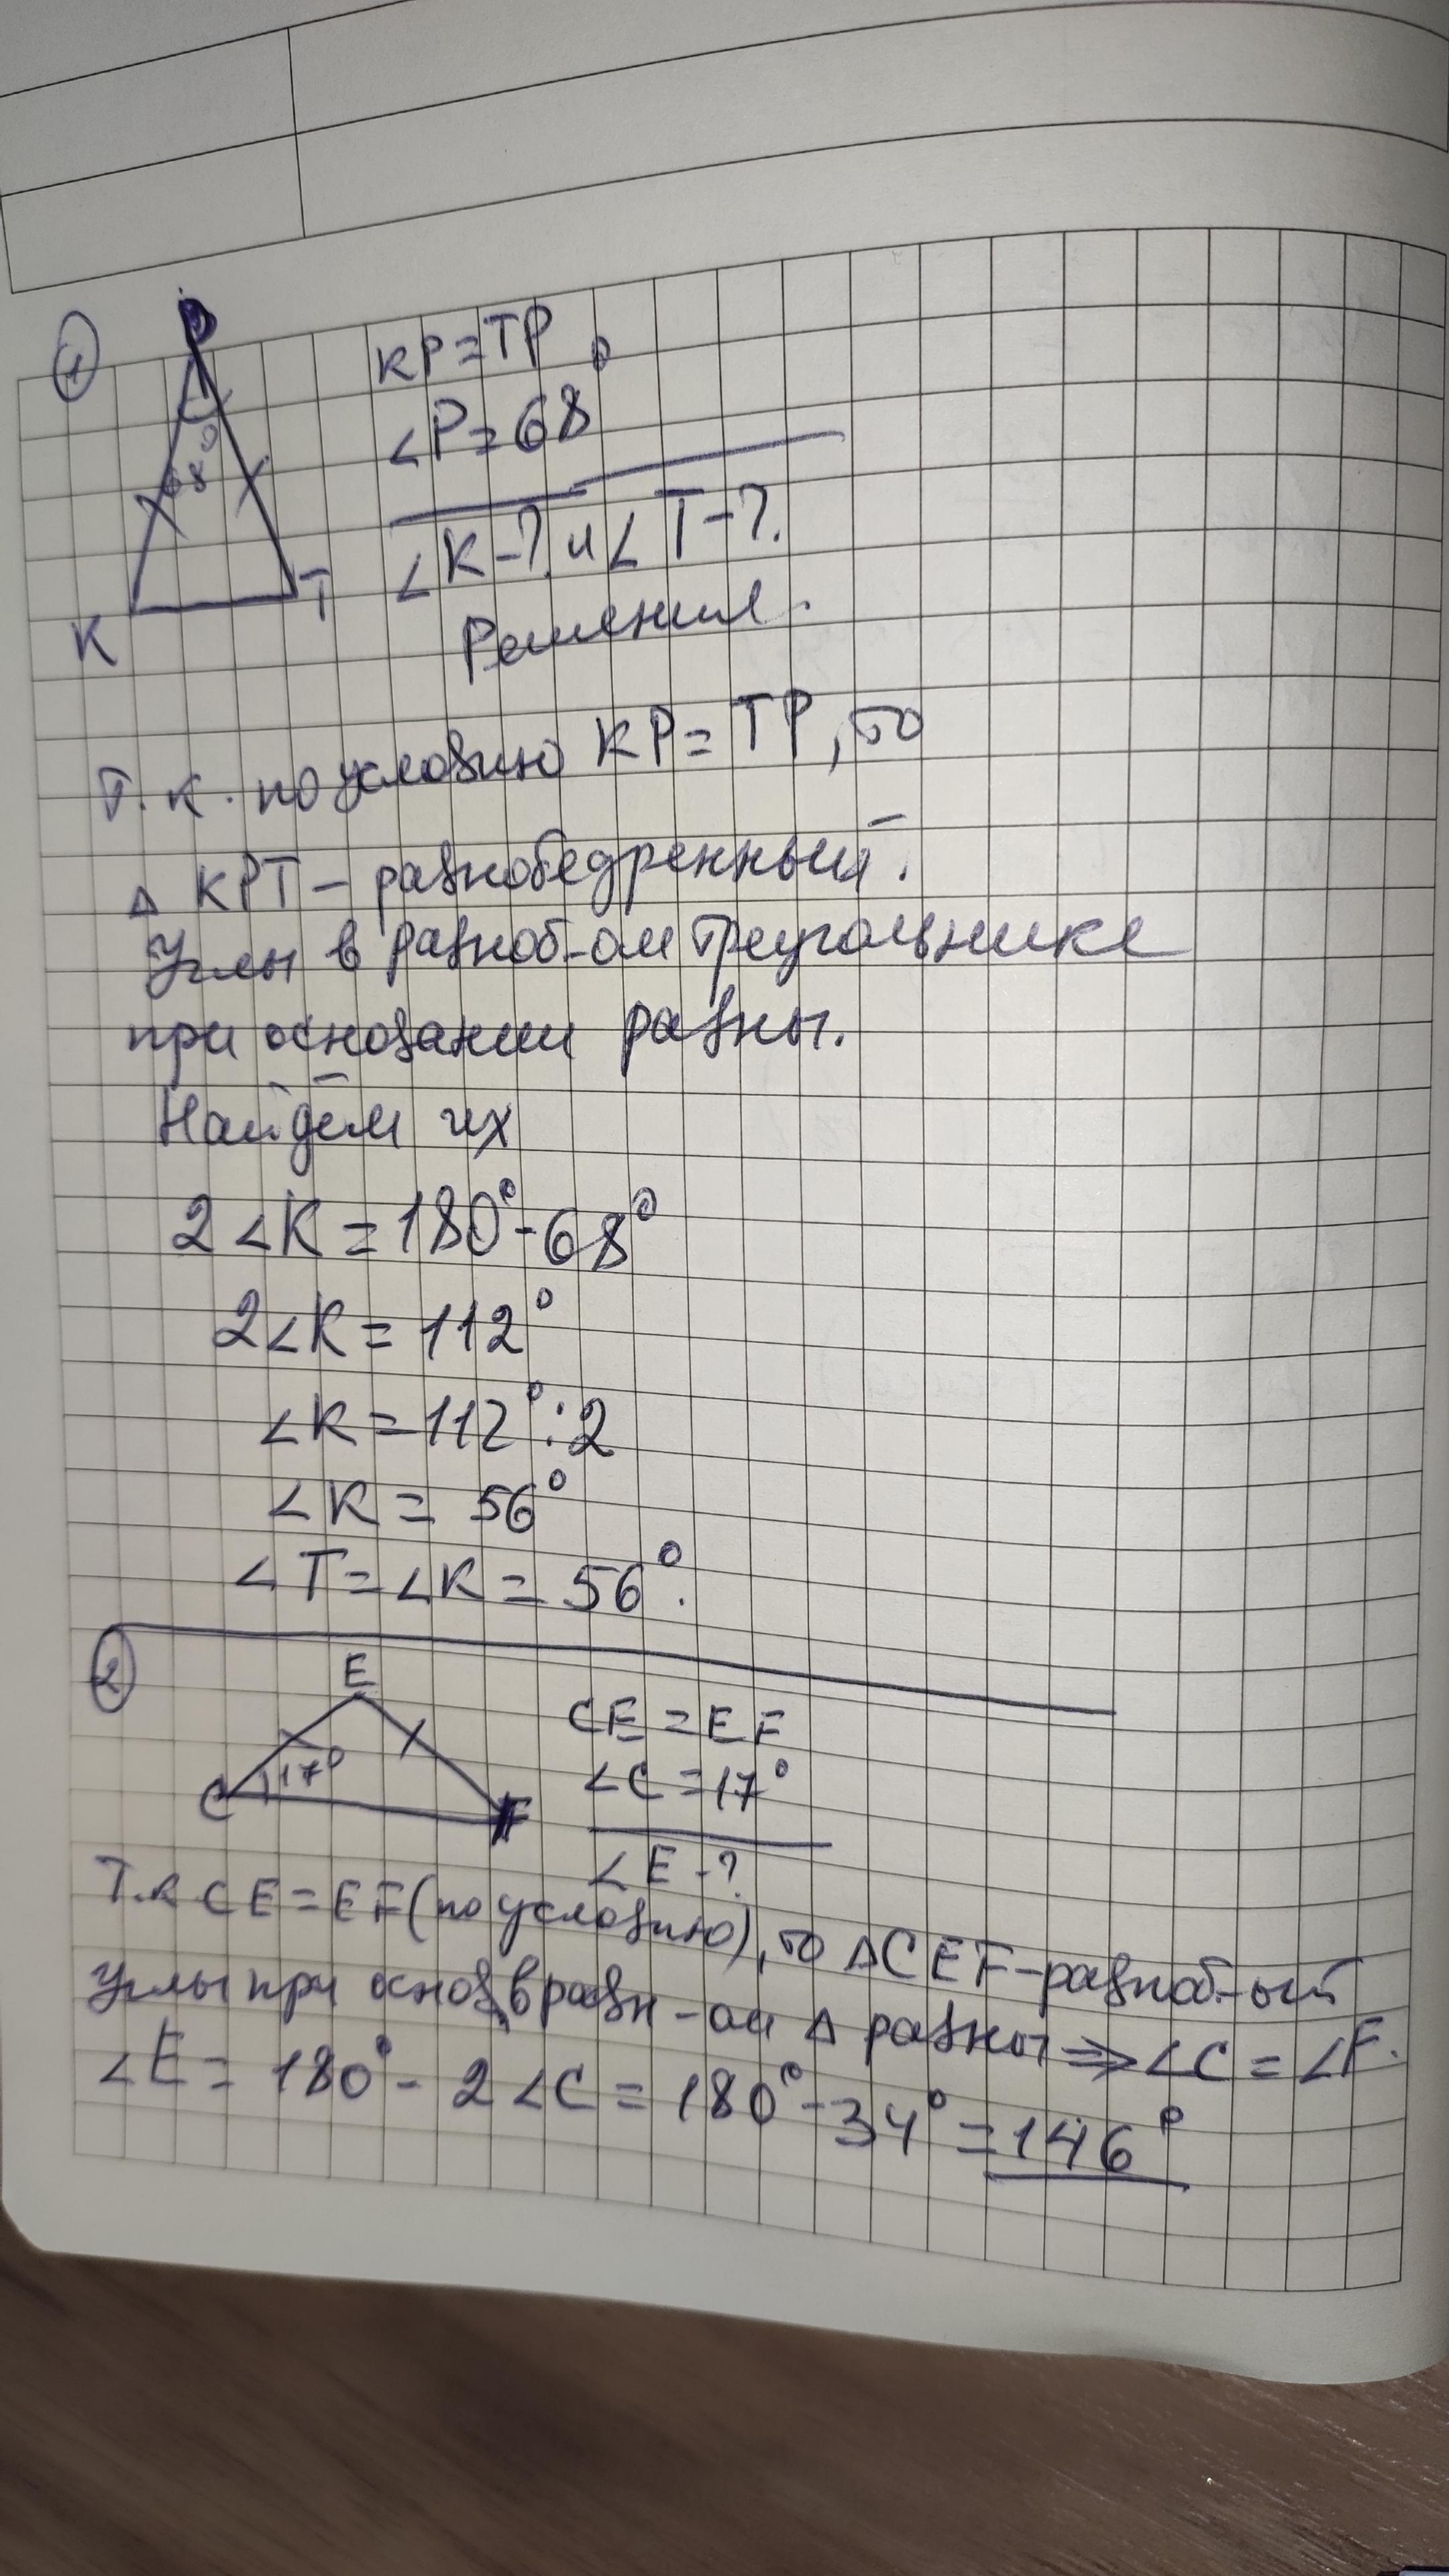 1
P
KP=TP
∠P=68°
68°
K
T
∠K-? и ∠T-?.
Решения.
Т.к. по условию KP=TP, то
△ KPT – равнобедренный.
Углы в равноб-ом треугольнике
при основании равны.
Найдём их
2∠K=180°-68°
2∠K=112°
∠K=112°:2
∠K= 56°
∠T=∠K= 56°.
2
E
CE=EF
17°
∠C=17°
C
F
∠E-?
Т.к CE=EF(по условию), то △CEF-равноб-ый
Углы при основ. в равн-ом △ равны ⇒ ∠C=∠F.
∠E= 180°- 2∠C= 180°-34°=146°